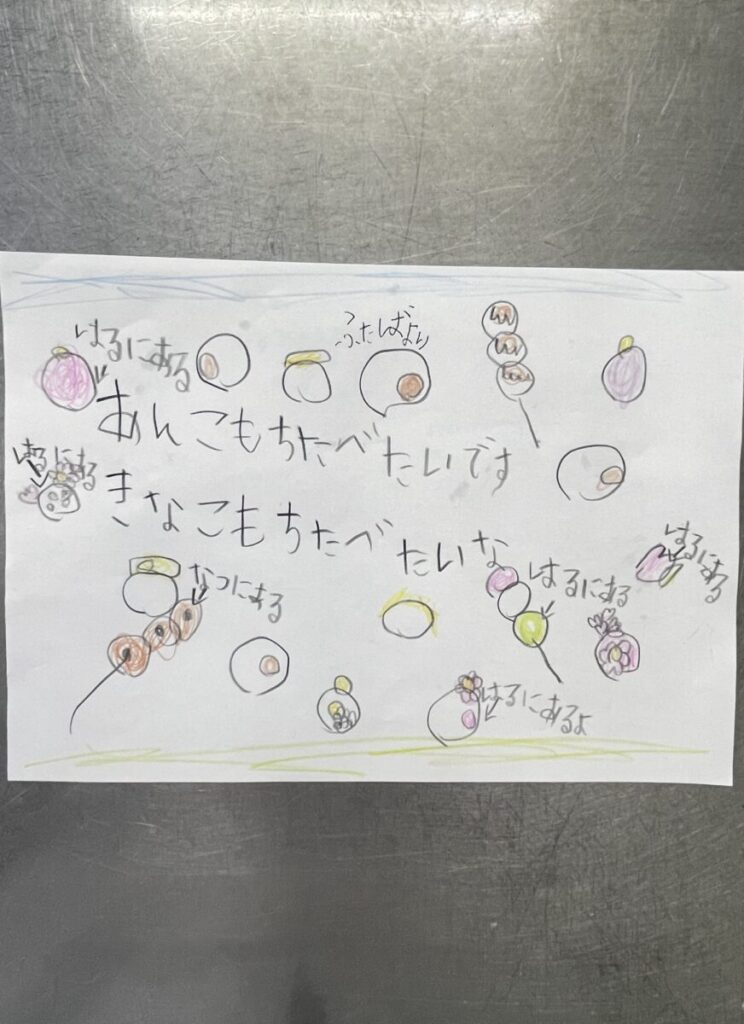 はるにある
ふたばより
あんこもちたべたいです
はるにある
きなこもちたべたいな
はるにある
なつにある
はるにある
はるにあるよ